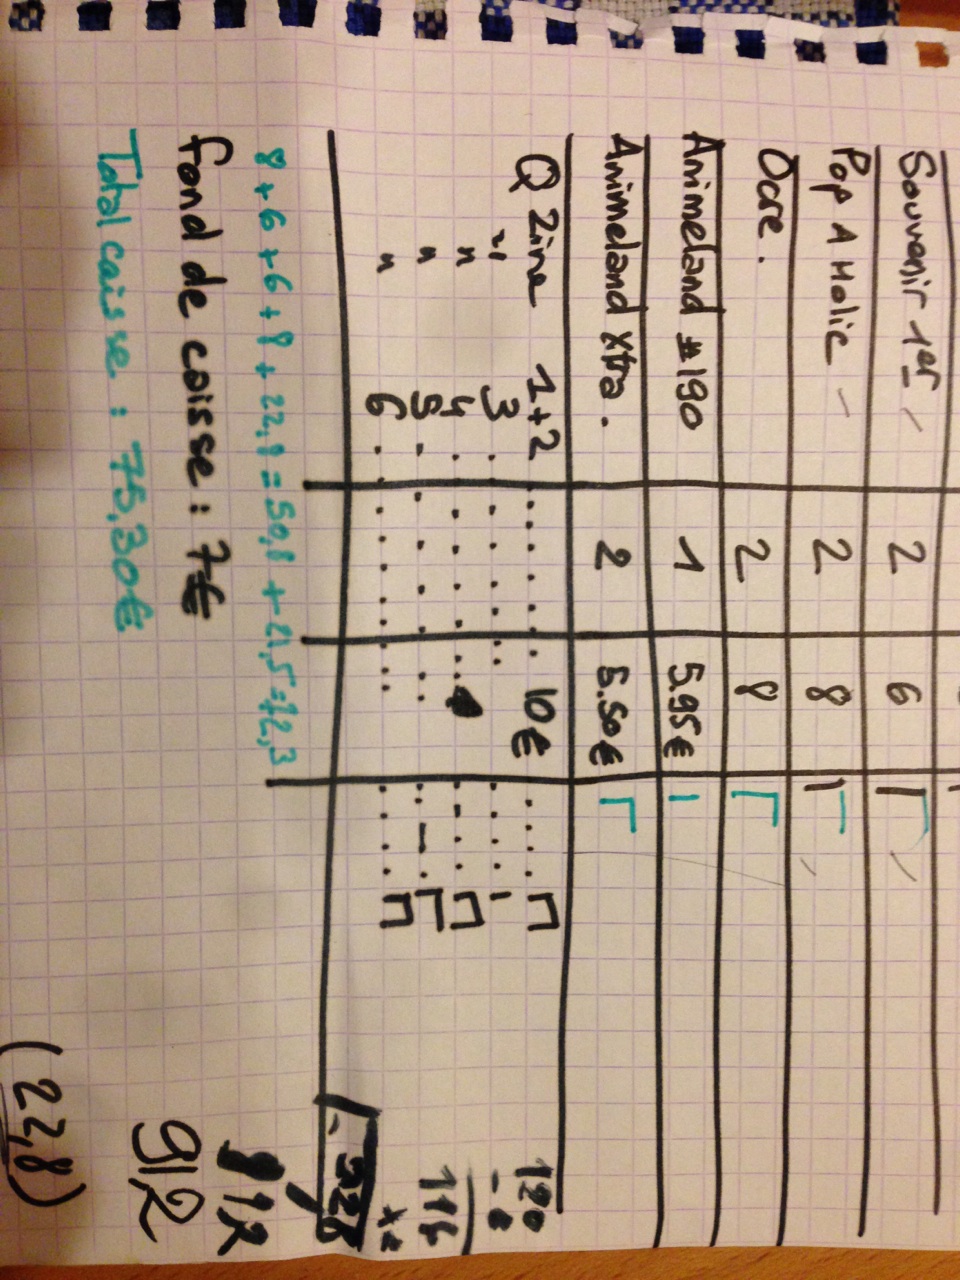 Souvenir 1er 2 6
Pop A Holic 2 8
Ocre. 2 8
Animeland #190 1 5.95€
Animeland Xtra. 2 5.50€
Q Zine 1+2 ........ 10€ ....
" 3 ........
" 4 ........
" 5 ........
" 6 ........
120
118
912
912
(22,8)
8 + 6 + 6 + 8 + 22,8 = 50,8 + 21,5 = 72,3
fond de caisse : 7€
Total caisse : 75,30€